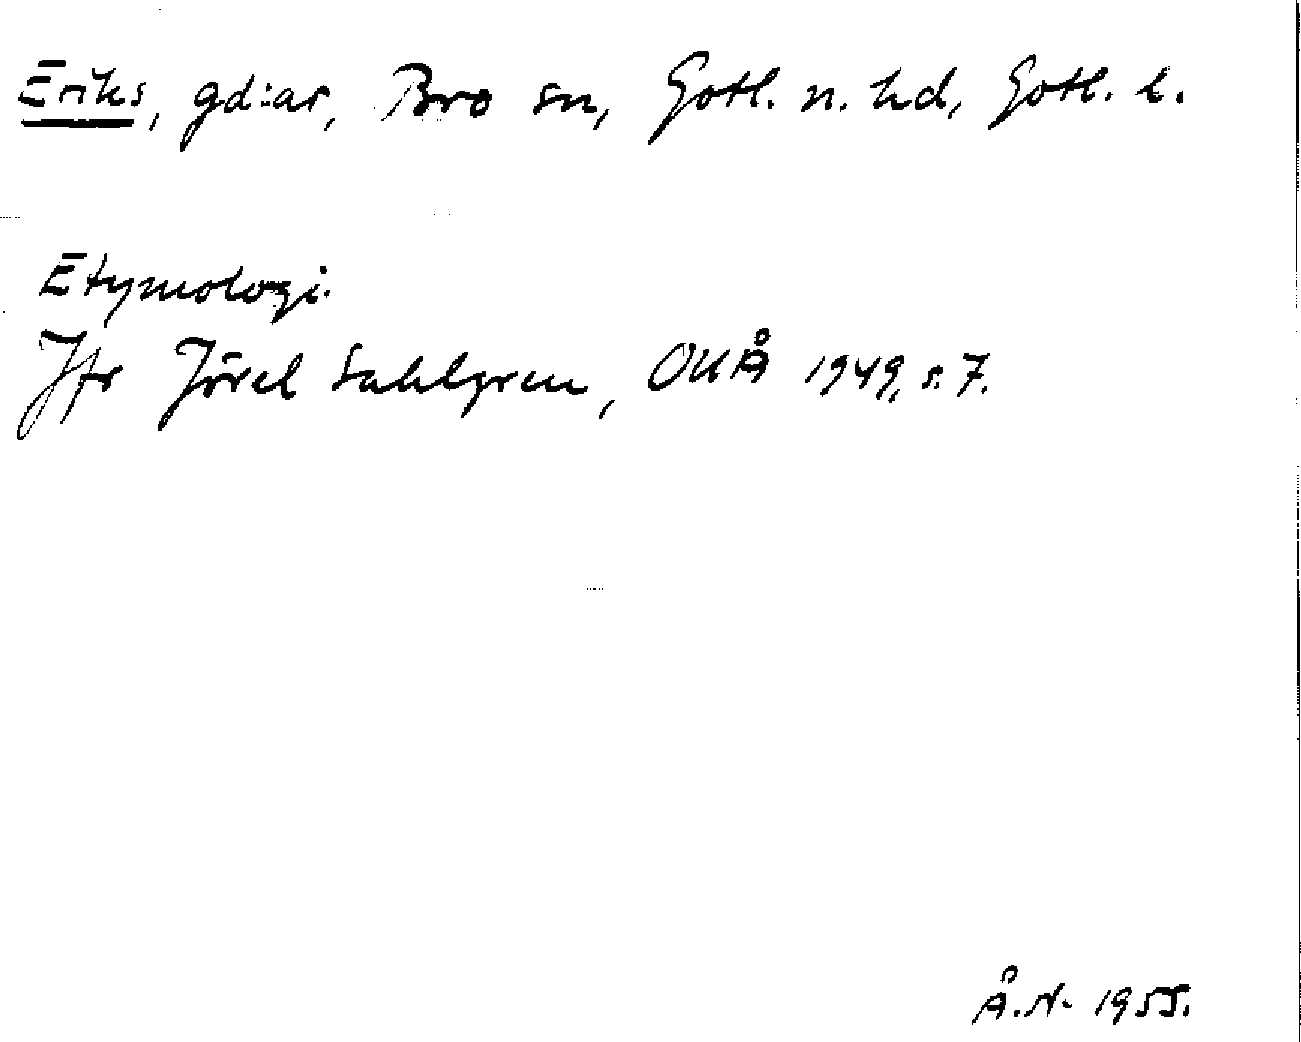 Eriks, gd:ar, Bro sn, Gotl. n. hd, Gotl. l.
Etymologi.
Jfr Jöran Sahlgren, OUÅ 1949, s. 7.
Å.N. 1955.